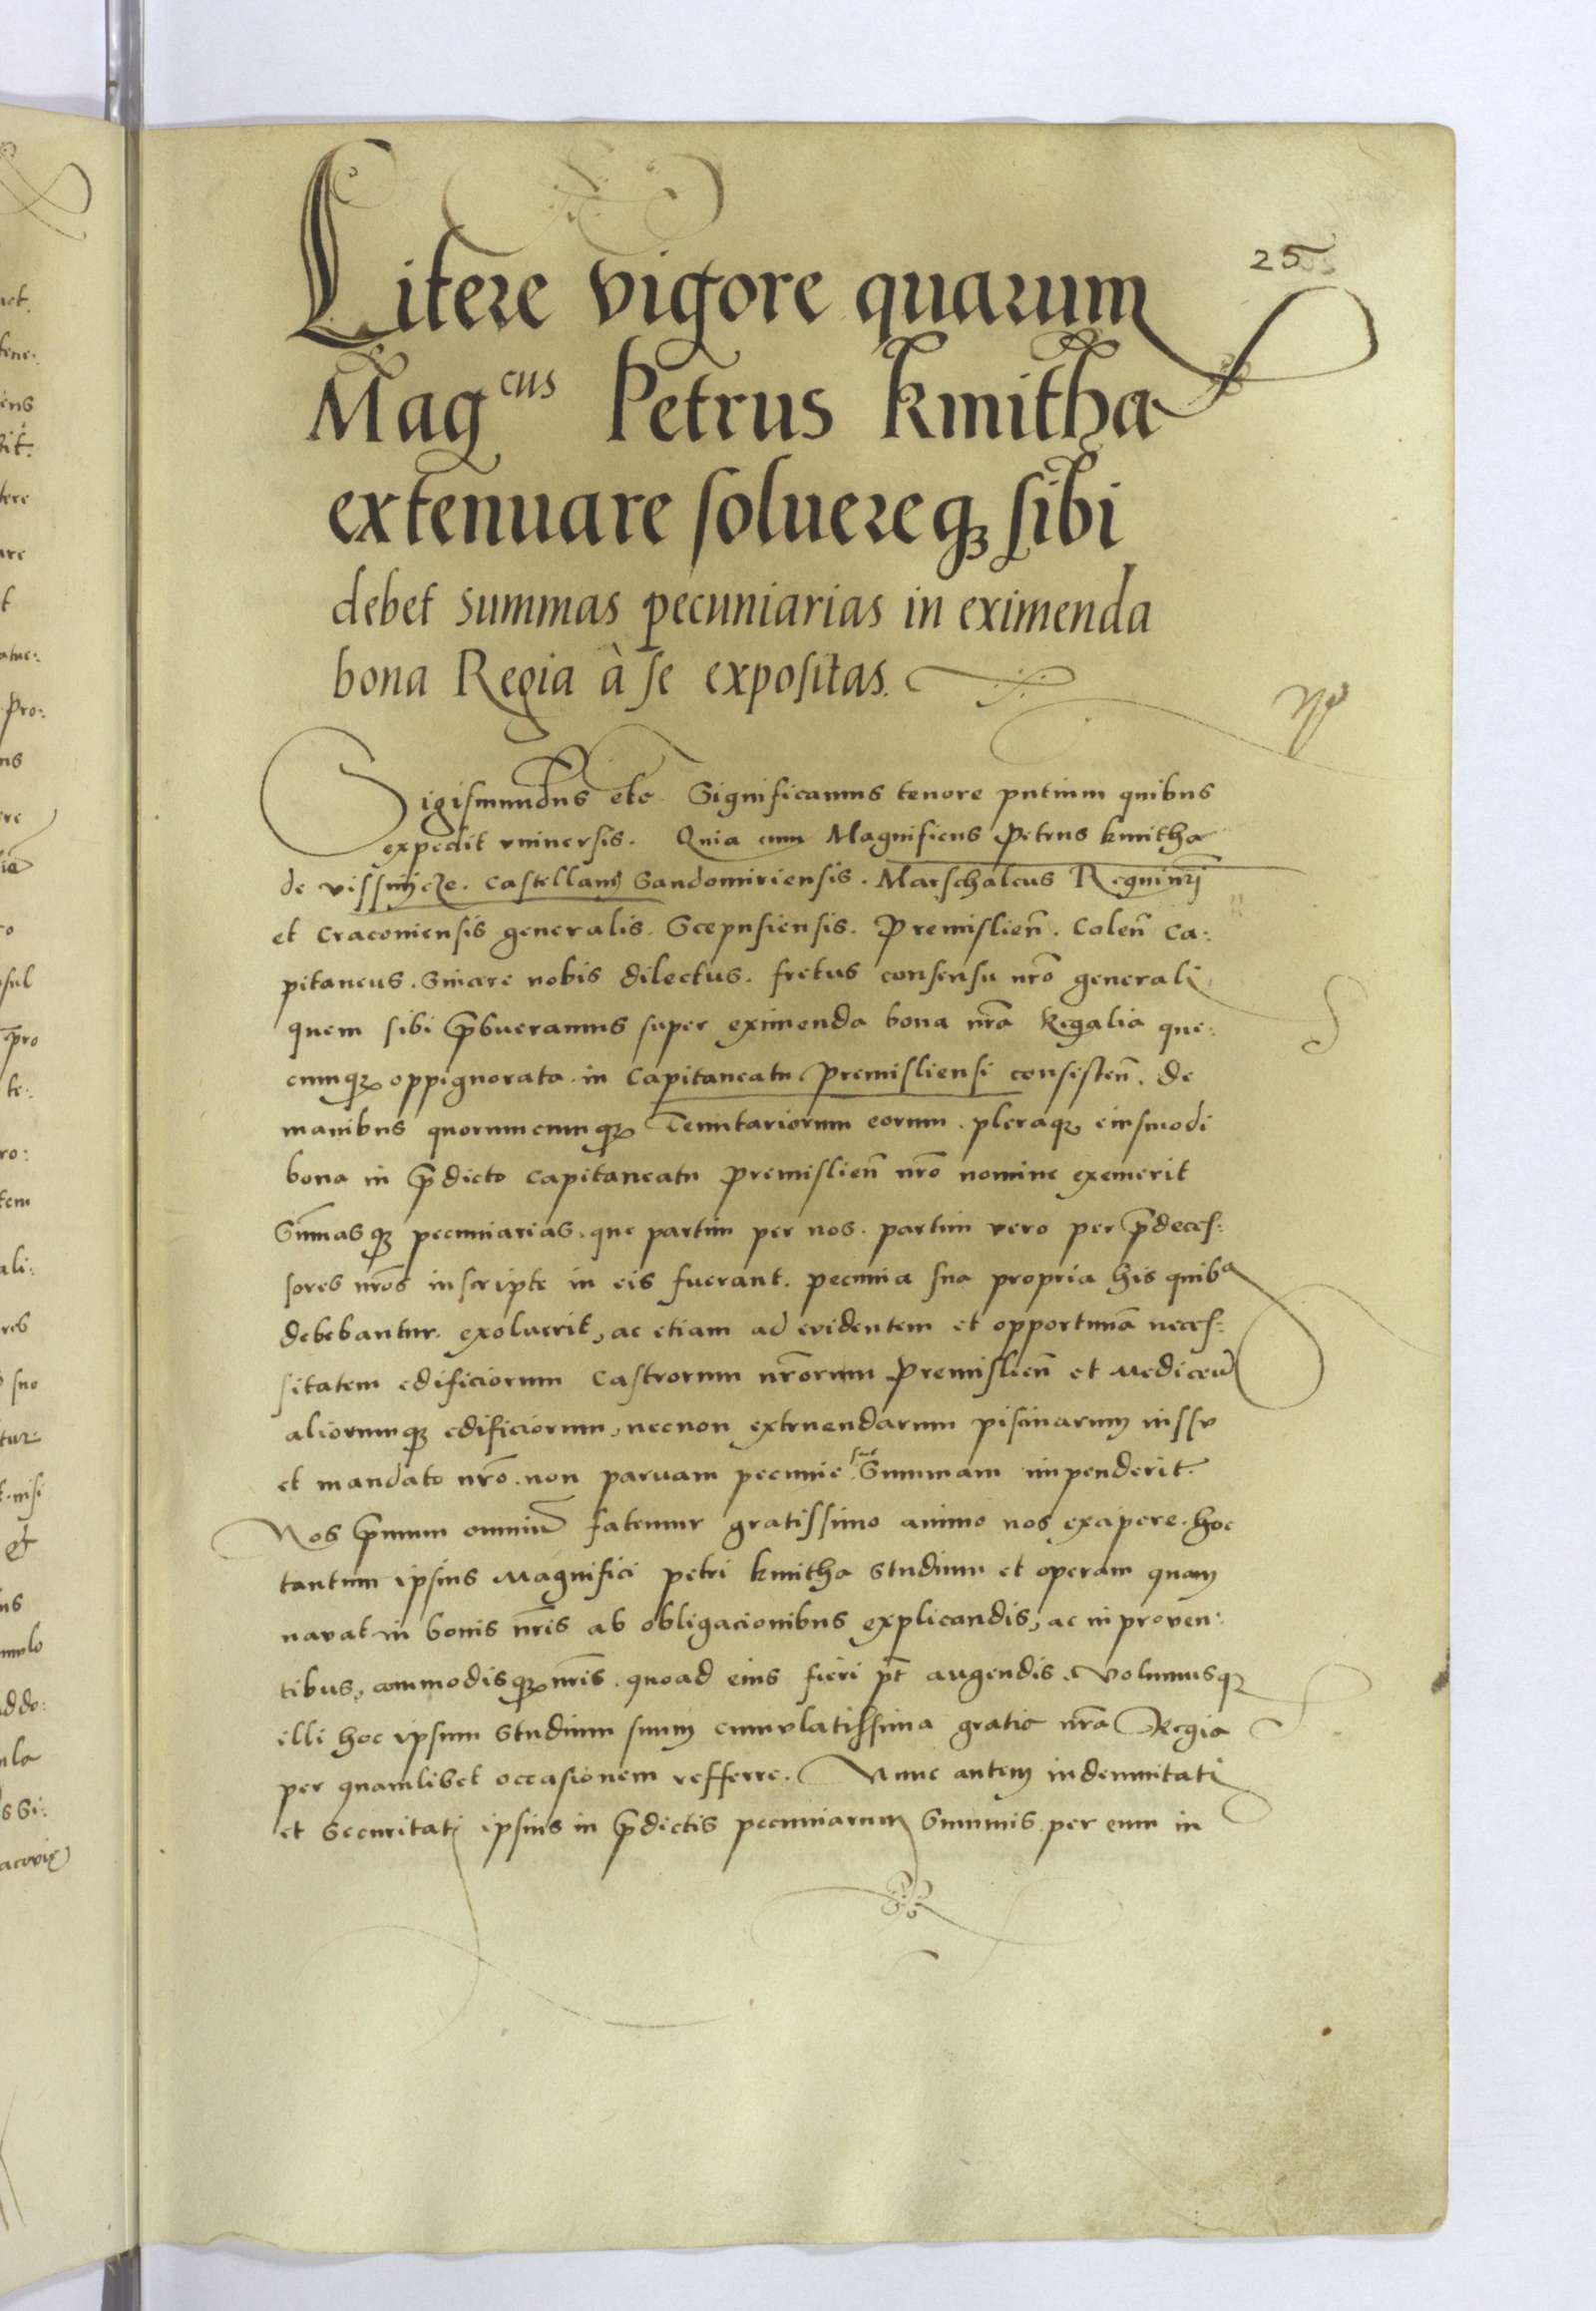 25
Litere vigore quarum
Mag^cus Petrus kmitha
extenuare soluereqȝ sibi
debet summas pecuniarias in eximenda
bona Regia à se expositas.
Sigismundus etc Significamus tenore pntium quibus
expedit vniuersis. Quia cum Magnificus Petrus kmitha
de vissnicze. Castellanus Sandomiriensis. Marschalcus Regni nri
et Craconiensis generalis. Scepusiensis. Premislien̄. Colen̄ Ca:
pitaneus. Sincere nobis dilectus. fretus consensu nrō generali
quem sibi p̄bueramus super eximenda bona nrā Regalia que:
cunqȝ oppignorata in Capitaneatu Premisliensi consisten̄. de
manibus quorumcumqȝ Tenutariorum eorum. pleraqȝ eiusmodi
bona in p̄dicto Capitaneatu Premislien̄ nrō nomine exemerit
Sum̄asqȝ pecuniarias. que partim per nos. partim vero per p̄deces:
sores nrōs inscripte in eis fuerant. pecunia sua propria his quibȝ
debebantur. exoluerit, ac etiam ad euidentem et opportunā neces:
sitatem edificiorum Castrorum nrōrum Premislien̄ et Mediceū
aliorumqȝ edificiorum, necnon extruendarum piscinarum iussv
et mandato nrō. non paruam pecunie sue Summam impenderit.
Nos p̄mum omniū fatemur gratissimo animo nos exapere. hoc
tantum ipsius Magnifici petri kmitha Studium et operam quam
nauat in bonis nrīs ab obligacionibus explicandis, ac in prouen:
tibus, commodisqȝ nrīs. quoad eius fieri pt̄ augendis. Volumusqȝ
illi hoc ipsum Studium suum cumulatissima gratia nrā Regia
per quamlibet occasionem refferre. Nunc autem indemnitati
et Securitati ipsius in p̄dictis pecuniarum Summis per eum in